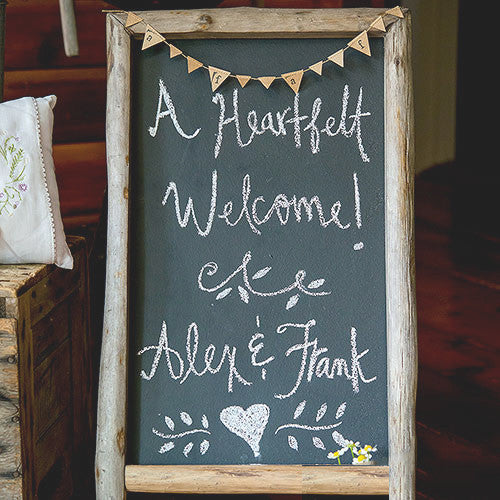 A Heartfelt
Welcome!
Alex & Frank